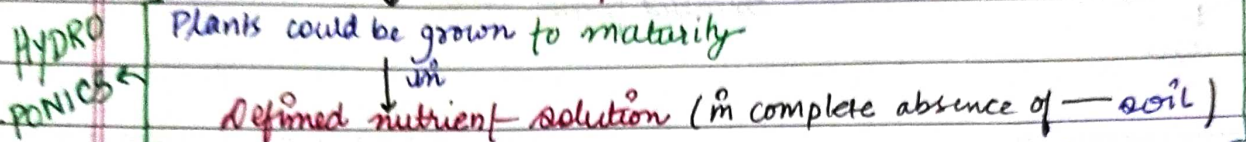 HYDRO
PONICS
Plants could be grown to maturity
in
Defined nutrient solution (in complete absence of — soil)